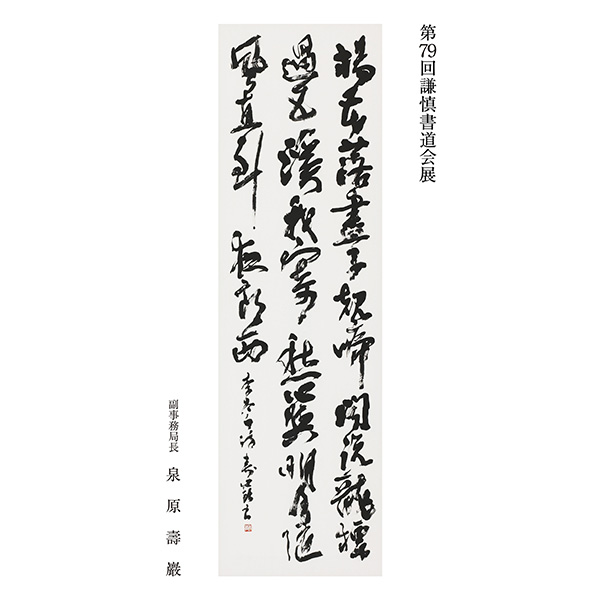 第79回謙慎書道会展
楊花落盡子規啼聞説龍標
過五溪我寄愁心與明月隨
風直到夜郎西 李太白詩 壽巖
副事務局長 泉原壽巖